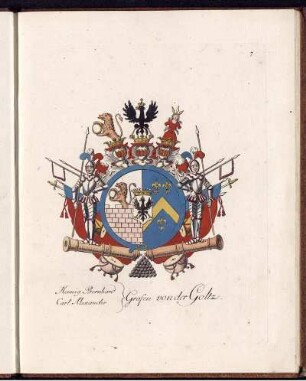 7
Hennig Bernhard
Carl Alexander
Grafen von der Goltz.